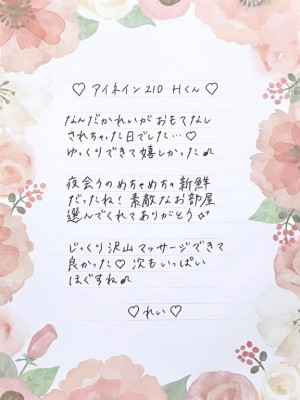 ♡ アイネイン210 Hくん ♡
なんだかれいがおもてなし
されちゃった日でした…♡
ゆっくりできて嬉しかった♪
夜会うのめちゃめちゃ新鮮
だったね！素敵なお部屋
選んでくれてありがとう
じっくり沢山マッサージできて
良かった♡ 次もいっぱい
ほぐすね♪
♡ れい ♡